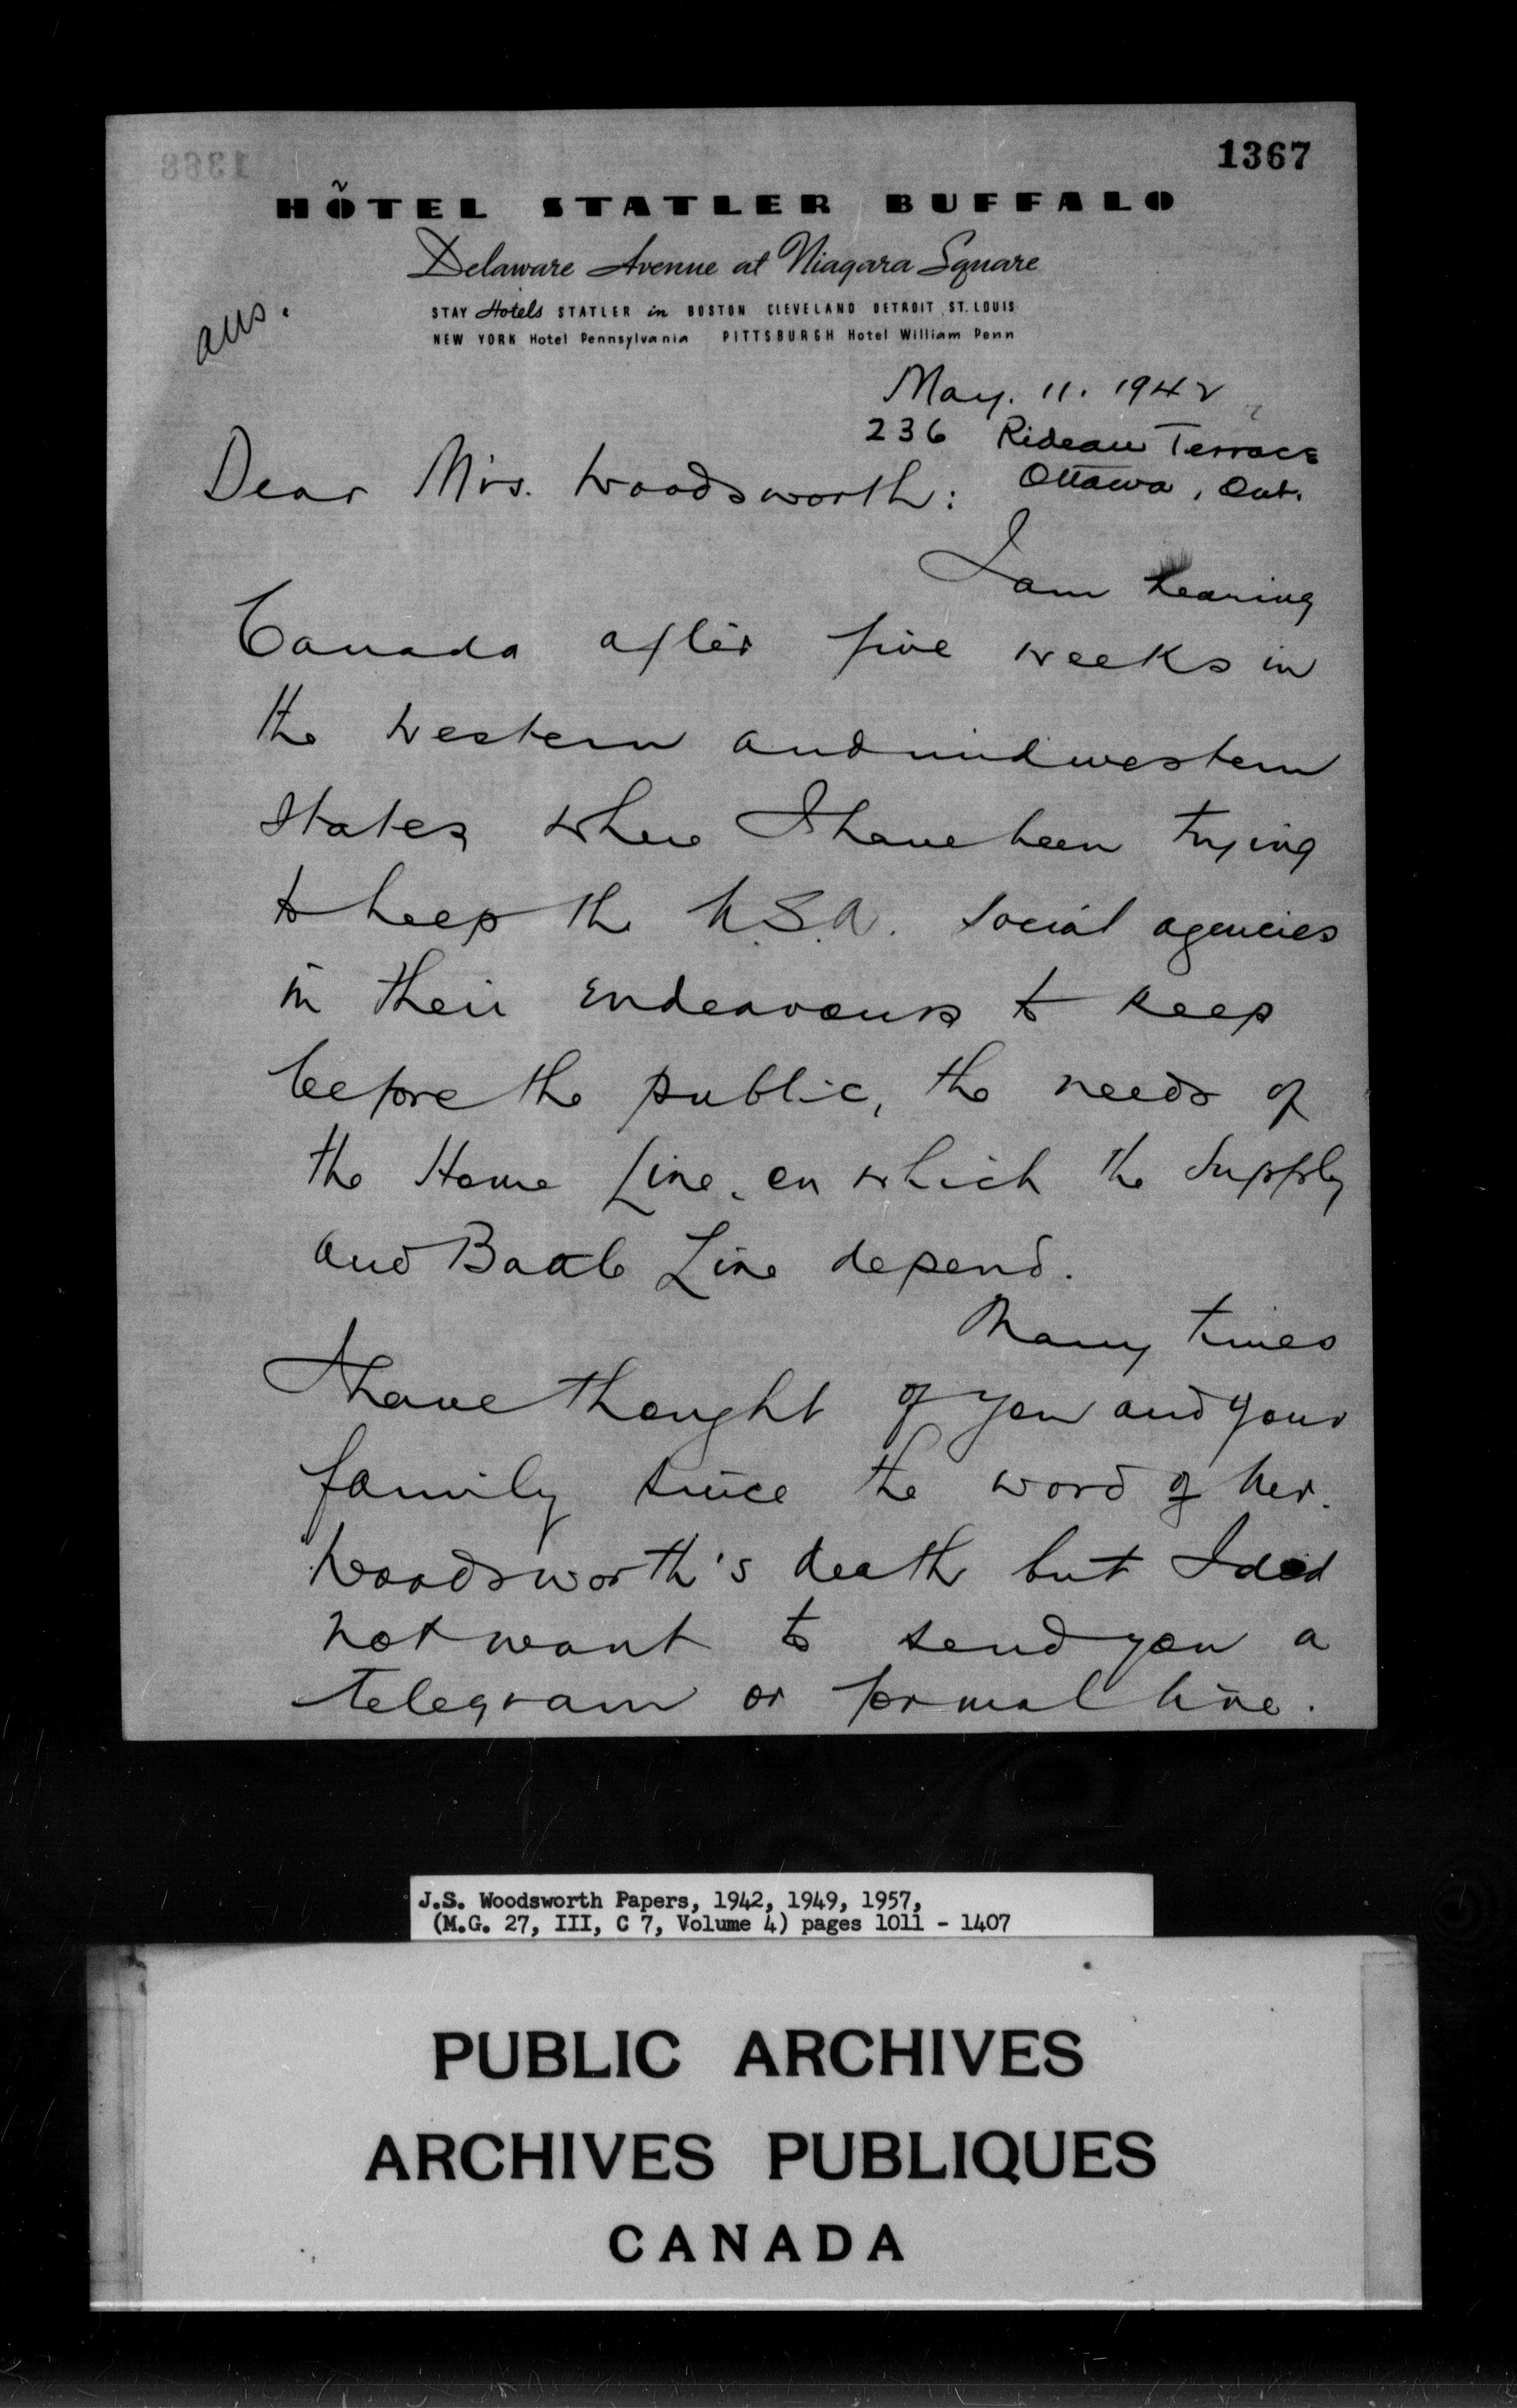 1367
1368
HÔTEL STATLER BUFFALO
Delaware Avenue at Niagara Square
STAY Hotels STATLER in BOSTON CLEVELAND DETROIT ST. LOUIS
NEW YORK Hotel Pennsylvania PITTSBURGH Hotel William Penn
ans.
May. 11. 1942
236 Rideau Terrace
Ottawa, Ont.
Dear Mrs. Woodsworth:
I am nearing
Canada after five weeks in
the western and midwestern
States where I have been trying
to keep the U.S.A. social agencies
in their endeavours to keep
before the public, the needs of
the Home Line, on which the Supply
and Battle Line depend.
Many times
I have thought of you and your
family since the word of Mr.
Woodsworth's death but I did
not want to send you a
telegram or formal line.
J.S. Woodsworth Papers, 1942, 1949, 1957,
(M.G. 27, III, C 7, Volume 4) pages 1011 - 1407
PUBLIC ARCHIVES
ARCHIVES PUBLIQUES
CANADA